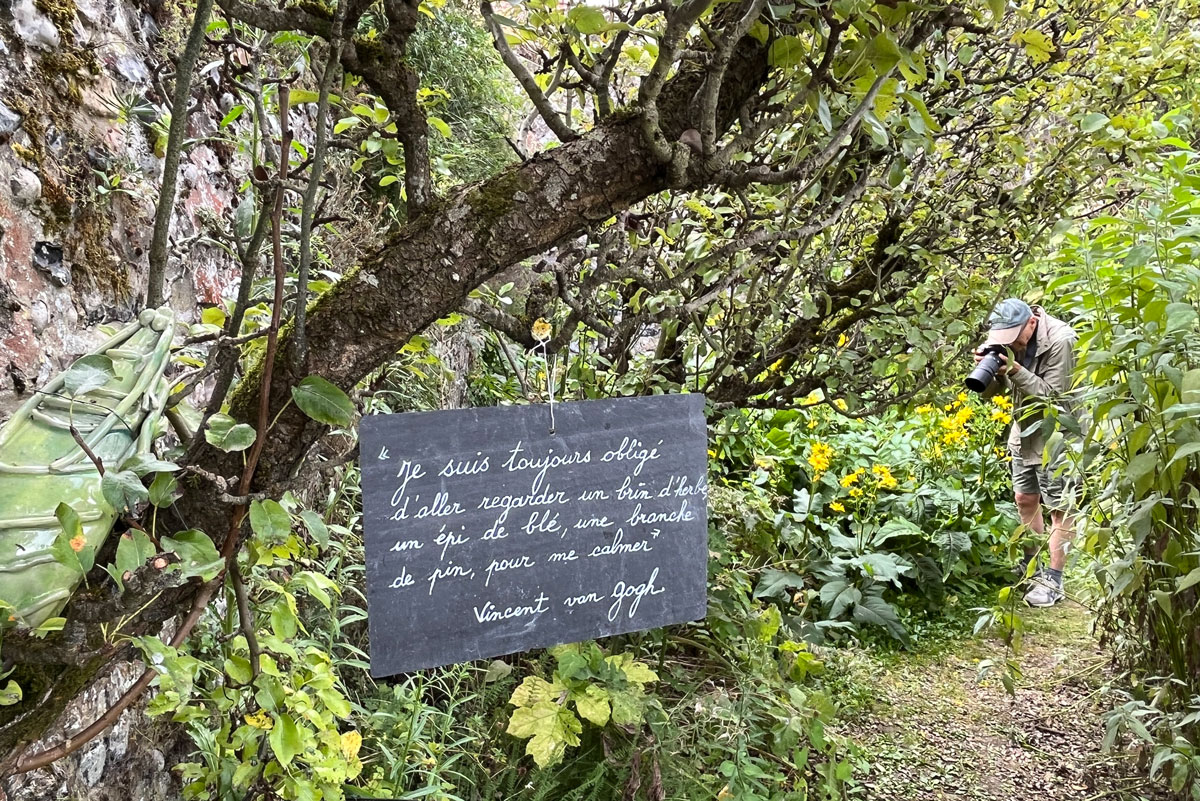 "Je suis toujours obligé
d'aller regarder un brin d'herbe
un épi de blé, une branche
de pin, pour me calmer"
Vincent van Gogh